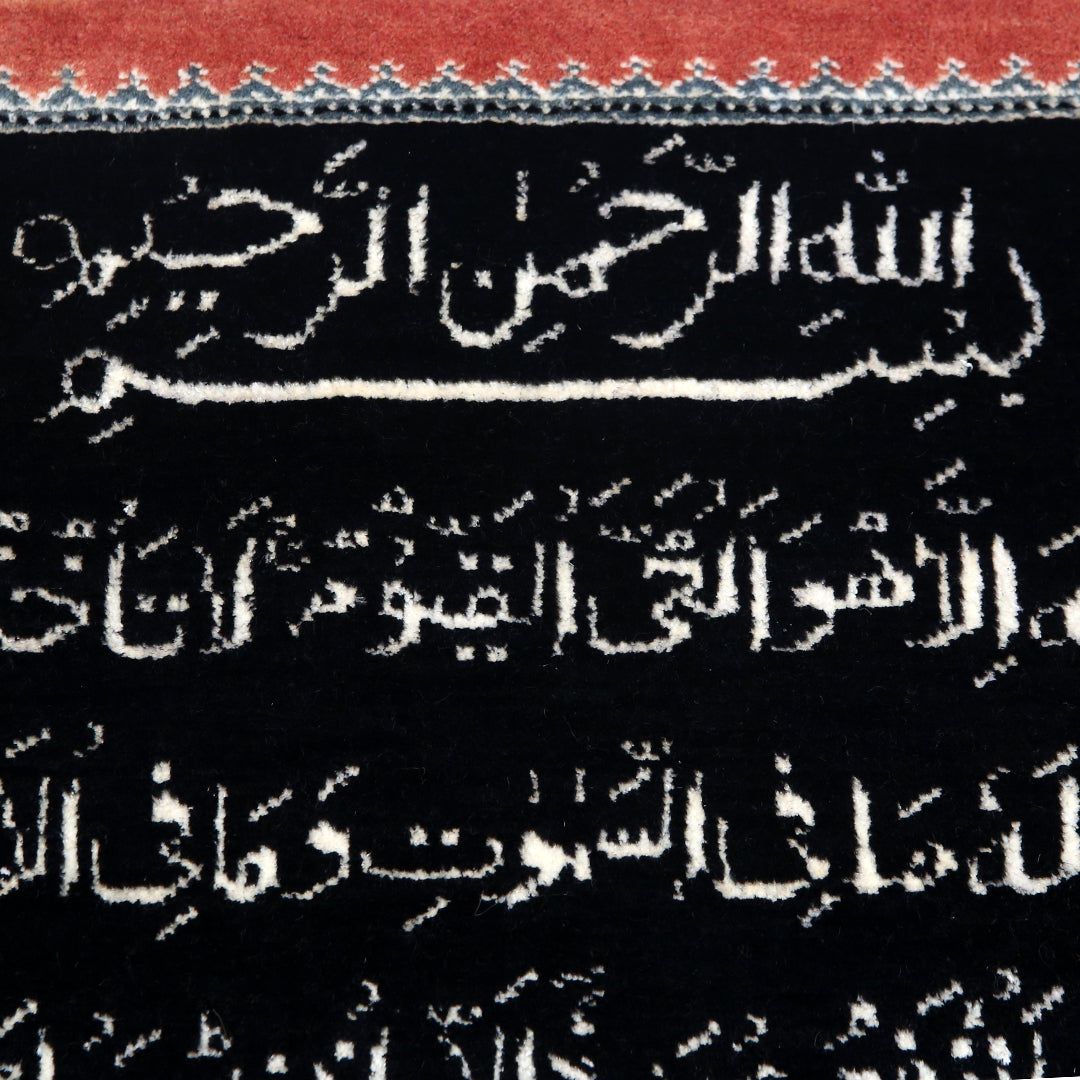 بِسْمِ اللّٰهِ الرَّحْمٰنِ الرَّحِيمِ
إِلَّا هُوَ الْحَيُّ الْقَيُّومُ لَا تَأْخُذُ
لَهُ مَا فِي السَّمٰوٰتِ وَمَا فِي الْأَ